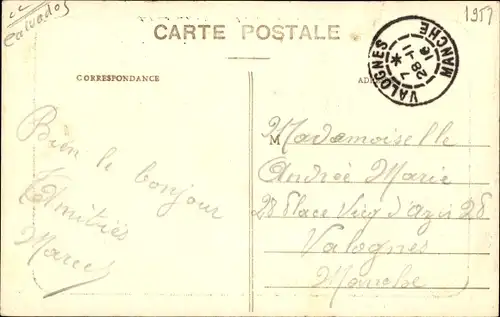 Calvados
1957
CARTE POSTALE
CORRESPONDANCE
VALOGNES
MANCHE
7 *
28-11
16
M
Mademoiselle
Andrée Marie
28 Place Vicq d'Azir 28
Valognes
Manche
Bien le bonjour
Amitiés
Marcel